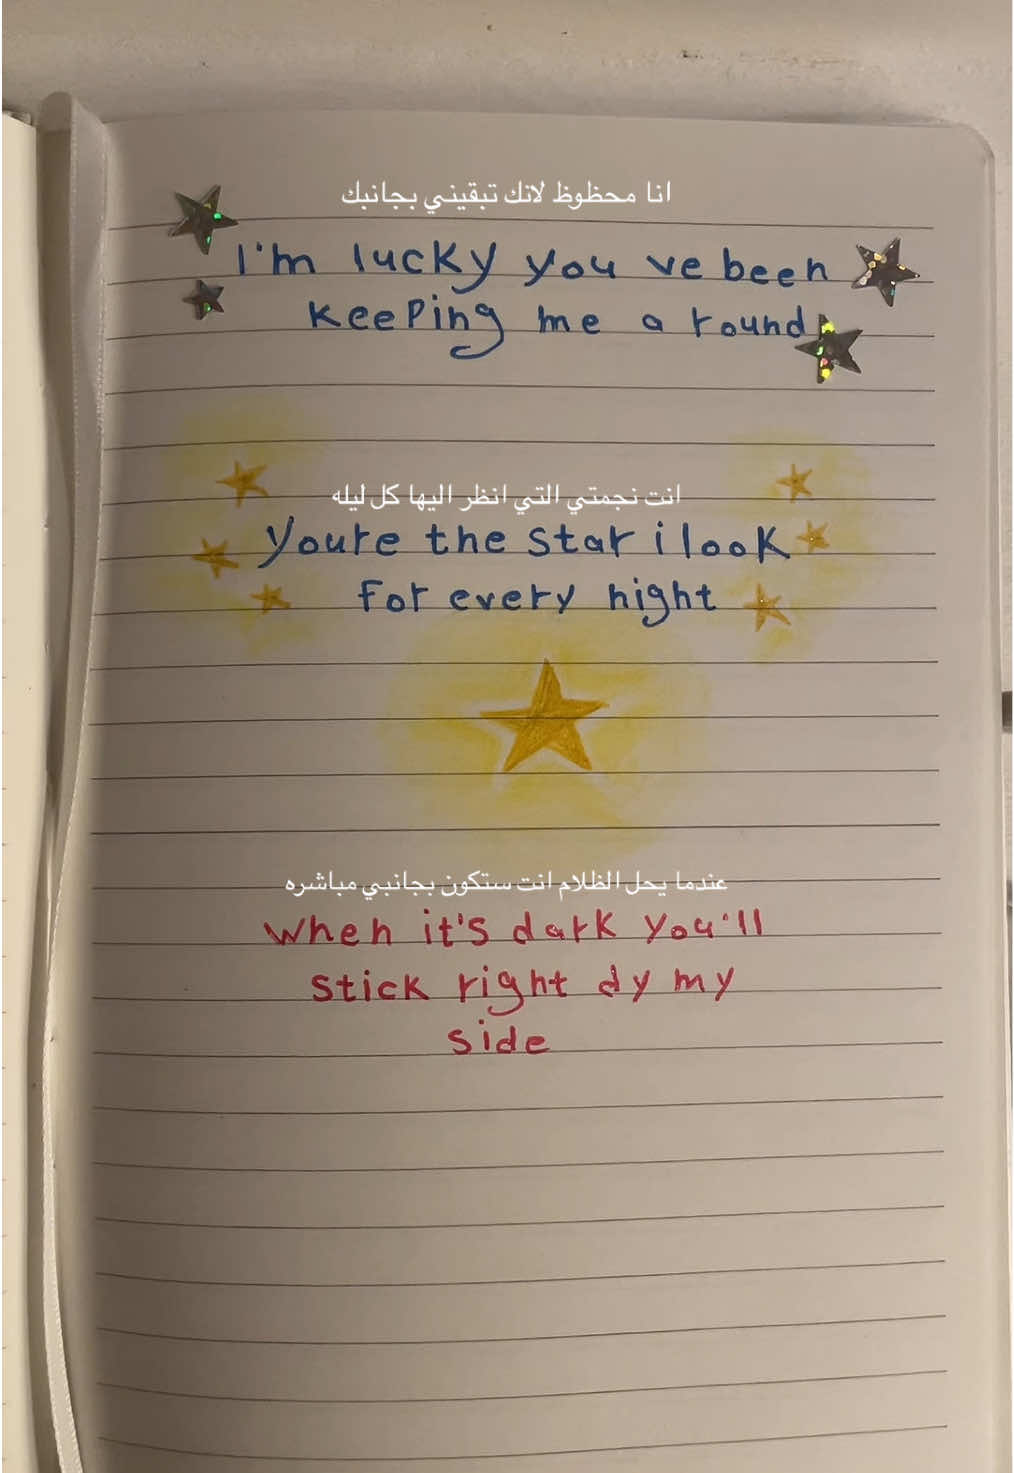 انا محظوظ لانك تبقيني بجانبك
I'm lucky you ve been
keeping me a round
انت نجمتي التي انظر اليها كل ليله
youre the star i look
for every night
عندما يحل الظلام انت ستكون بجانبي مباشره
when it's dark you'll
stick right dy my
side